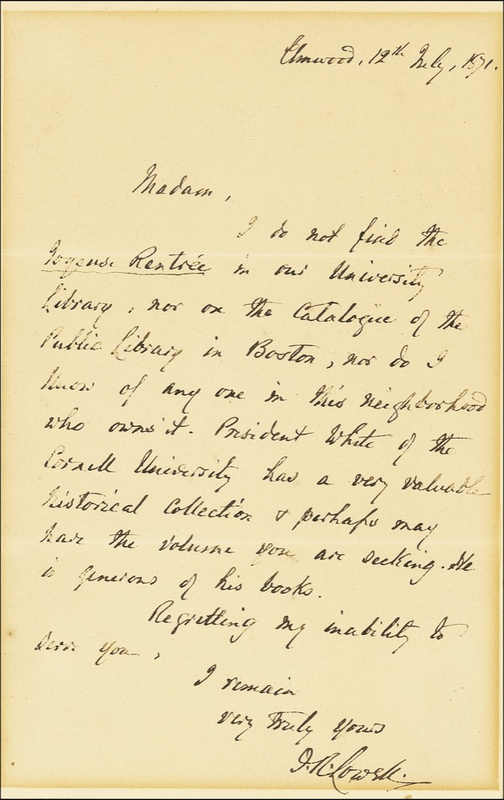 Elmwood, 12th July, 1871.
Madam,
I do not find the
Joyeuse Rentrée in our University
Library, nor on the Catalogue of the
Public Library in Boston, nor do I
know of any one in this neighborhood
who owns it. President White of the
Cornell University has a very valuable
historical collection & perhaps may
have the volume you are seeking. He
is generous of his books.
Regretting my inability to
serve you,
I remain
very truly yours
J. R. Lowell.